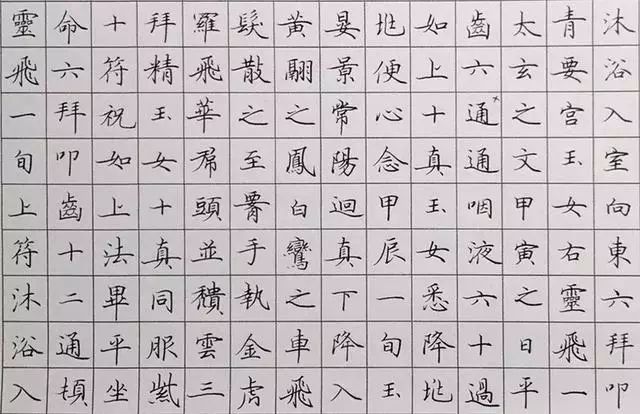 沐浴入室向東六拜叩
青要宫玉女右靈飛一
太玄之文甲寅之日平
齒六通通咽液六十過
如上十真玉女悉降兆
兆便心念甲辰一旬玉
晏景常陽迴真下降入
黃翮之鳳白鸞之車飛
髮散之至腰手執金虎
羅飛華帬頭並頽雲三
拜精玉女十真同服紫
十符祝如上法畢平坐
命六拜叩齒十二通頓
靈飛一旬上符沐浴入